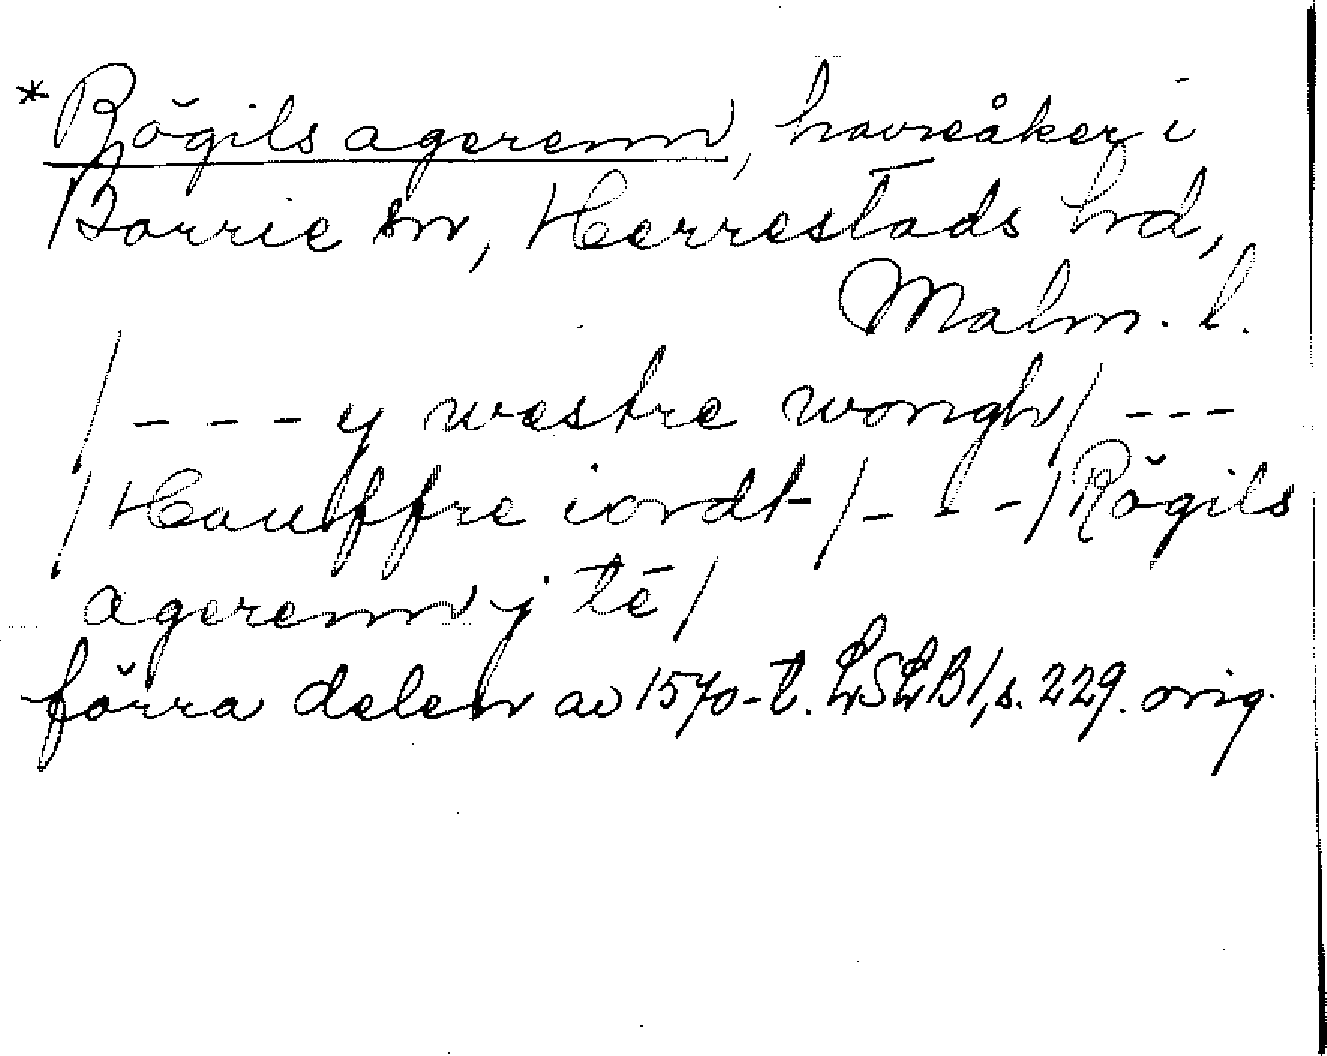 *Rögils agerenn, havreåker i
Borrie sn, Herrestads hd,
Malm. l.
/ - - - y westre wongh / - - -
/ Hauffre iordt / - - - / Rögils
agerenn j té /
förra delen av 1570-t. LSLB 1, s. 229. orig.